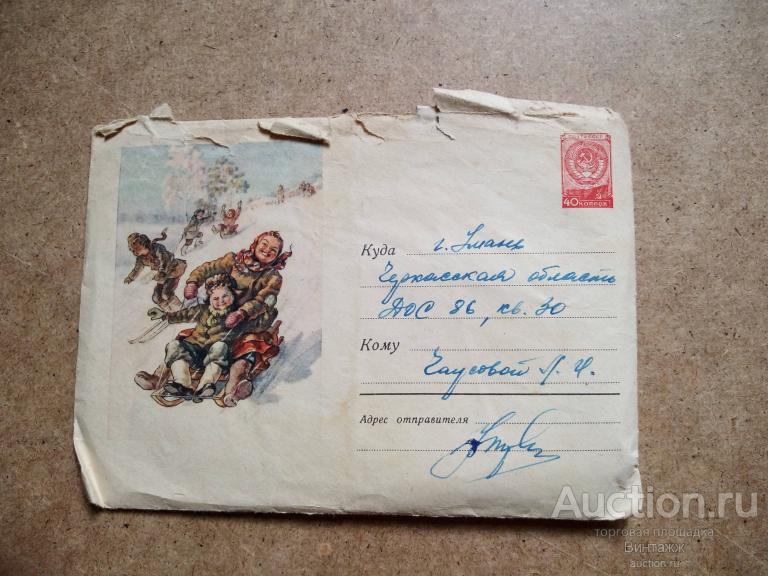 ПОЧТА СССР
40 КОПЕЕК
Куда г. Умань
Черкасская область
ДОС 86, кв. 30
Кому
Чаусовой Л. И.
Адрес отправителя
Auction.ru
торговая площадка
Винтажж
auction.ru